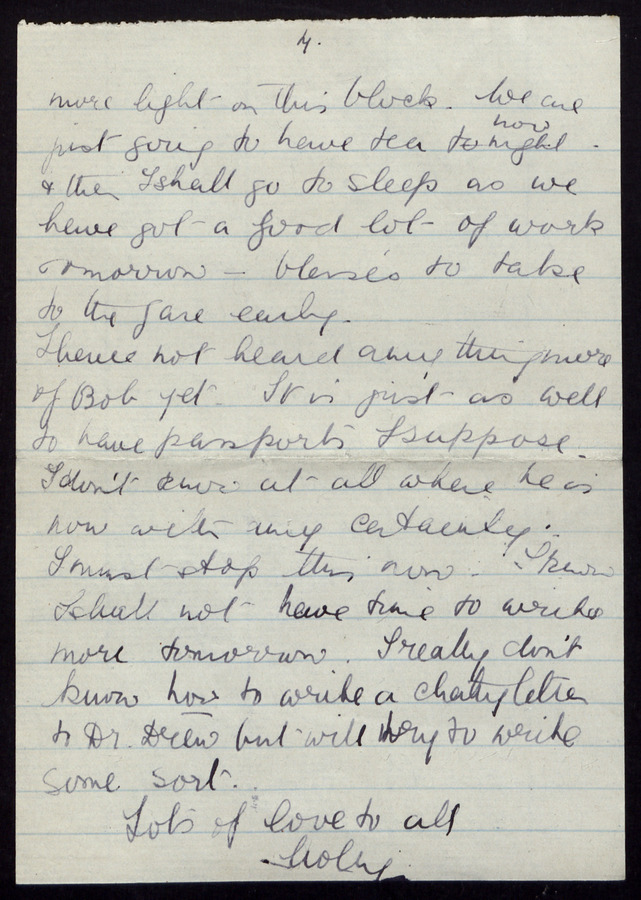 4.
more light on this block. We are
just going to have tea tonight now.
& then I shall go to sleep as we
have got a good lot of work
tomorrow – blessés to take
to the gare early.
I have not heard any thing more
of Bob yet. It is just as well
to have passports I suppose.
I don't know at all where he is
now with any certainty.
I must stop this now. I know
I shall not have time to write
more tomorrow. I really don't
know how to write a chatty letter
to Dr. Drew but will try to write
some sort.
Lots of love to all